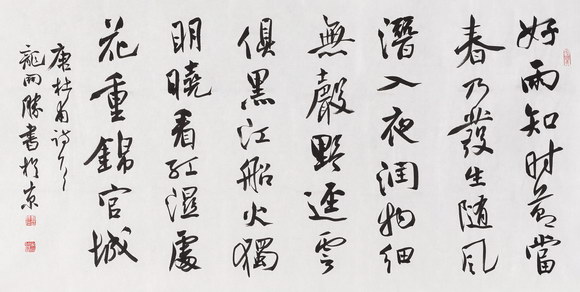 好雨知时節當
春乃發生隨風
潛入夜潤物細
無聲野逕雲
俱黑江船火獨
明曉看紅濕處
花重錦官城
唐杜甫詩
龍雨勝書於京